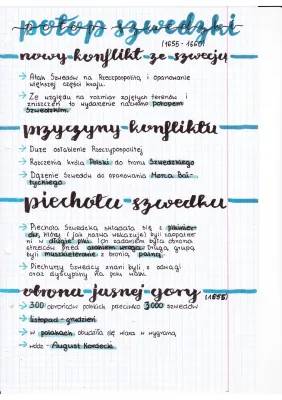 potop szwedzki
(1655 - 1660)
nowy konflikt ze szwecją
→ Atak Szwedów na Rzeczpospolitą i opanowanie
większej części kraju.
→ Ze względu na rozmiar zajętych terenów i
zniszczeń to wydarzenie nazwano potopem
szwedzkim.
przyczyny konfliktu
→ Duże osłabienie Rzeczypospolitej
→ Roszczenia króla Polski do tronu Szwedzkiego
→ Dążenie Szwedów do opanowania Morza Bał-
tyckiego
piechota szwedzka
→ Piechota Szwedzka składała się z pikinie-
rów, którzy (jak nazwa wskazuje) byli zaopatrze-
ni w długie piki. Ich zadaniem była obrona
strzelców przed atakiem wroga. Drugą grupą
byli muszkieterowie z bronią palną.
→ Piechurzy Szwedzcy znani byli z odwagi
oraz dyscypliny na polu walki.
obrona jasnej góry (1655)
→ 300 obrońców polskich przeciwko 3000 szwedów
→ listopad - grudzień
→ w polakach obudziła się wiara w wygraną
→ wódz - August Kordecki